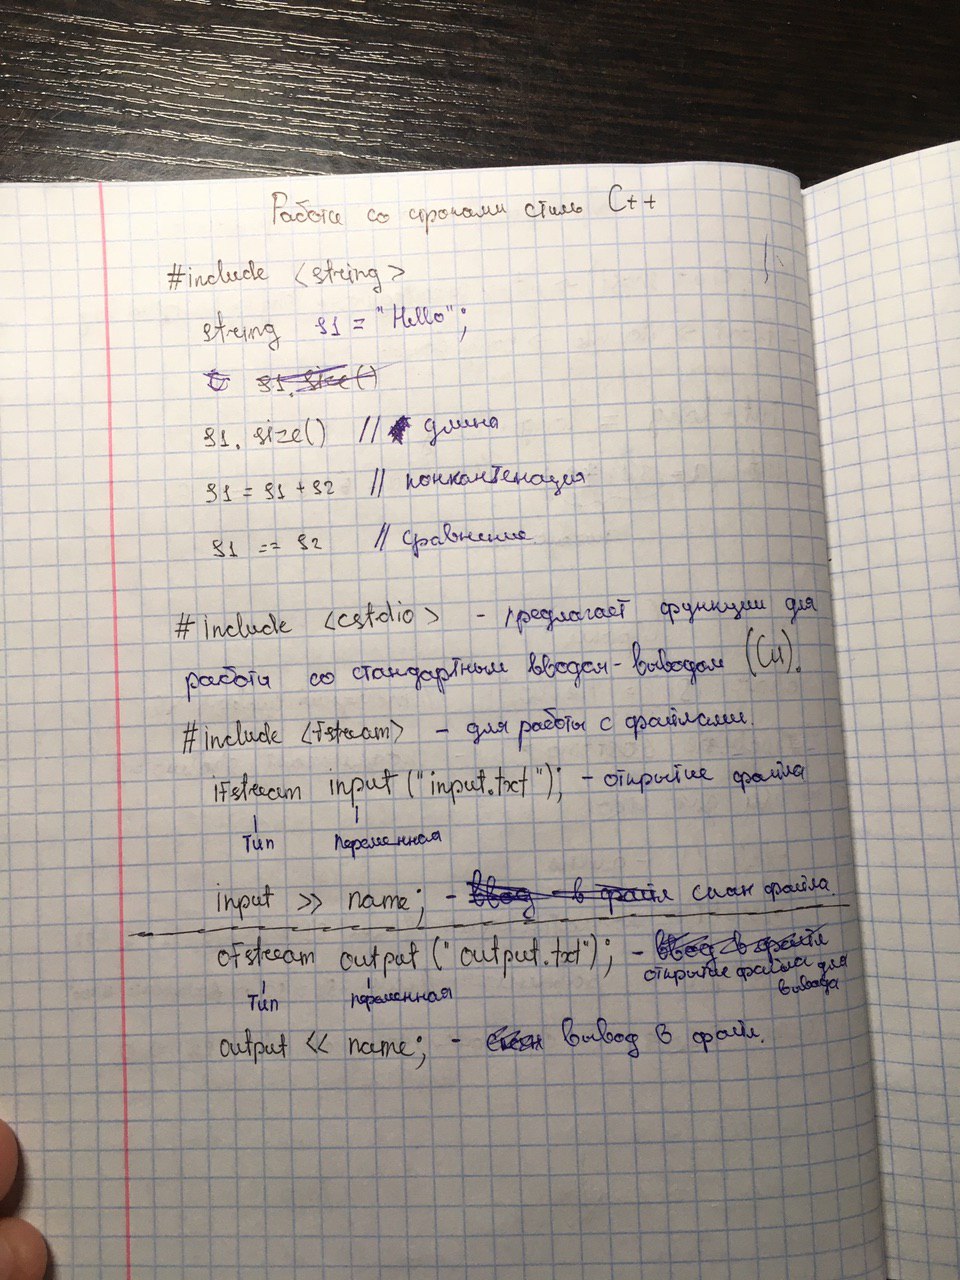 Работа со строками стиль C++
#include <string>
string s1 = "Hello";
s1.size()
s1.size() // длина
s1 = s1 + s2 // конкантенация
s1 == s2 // сравнение
#include <cstdio> - предлагает функции для
работы со стандартным вводом-выводом (Си).
#include <fstream> - для работы с файлами.
ifstream input ("input.txt"); - открытие файла
тип переменная
input >> name; - ввод в файл скан файла.
ofstream output ("output.txt"); - ввод в файл
открытие файла для
вывода
тип переменная
output << name; - скан вывод в файл.